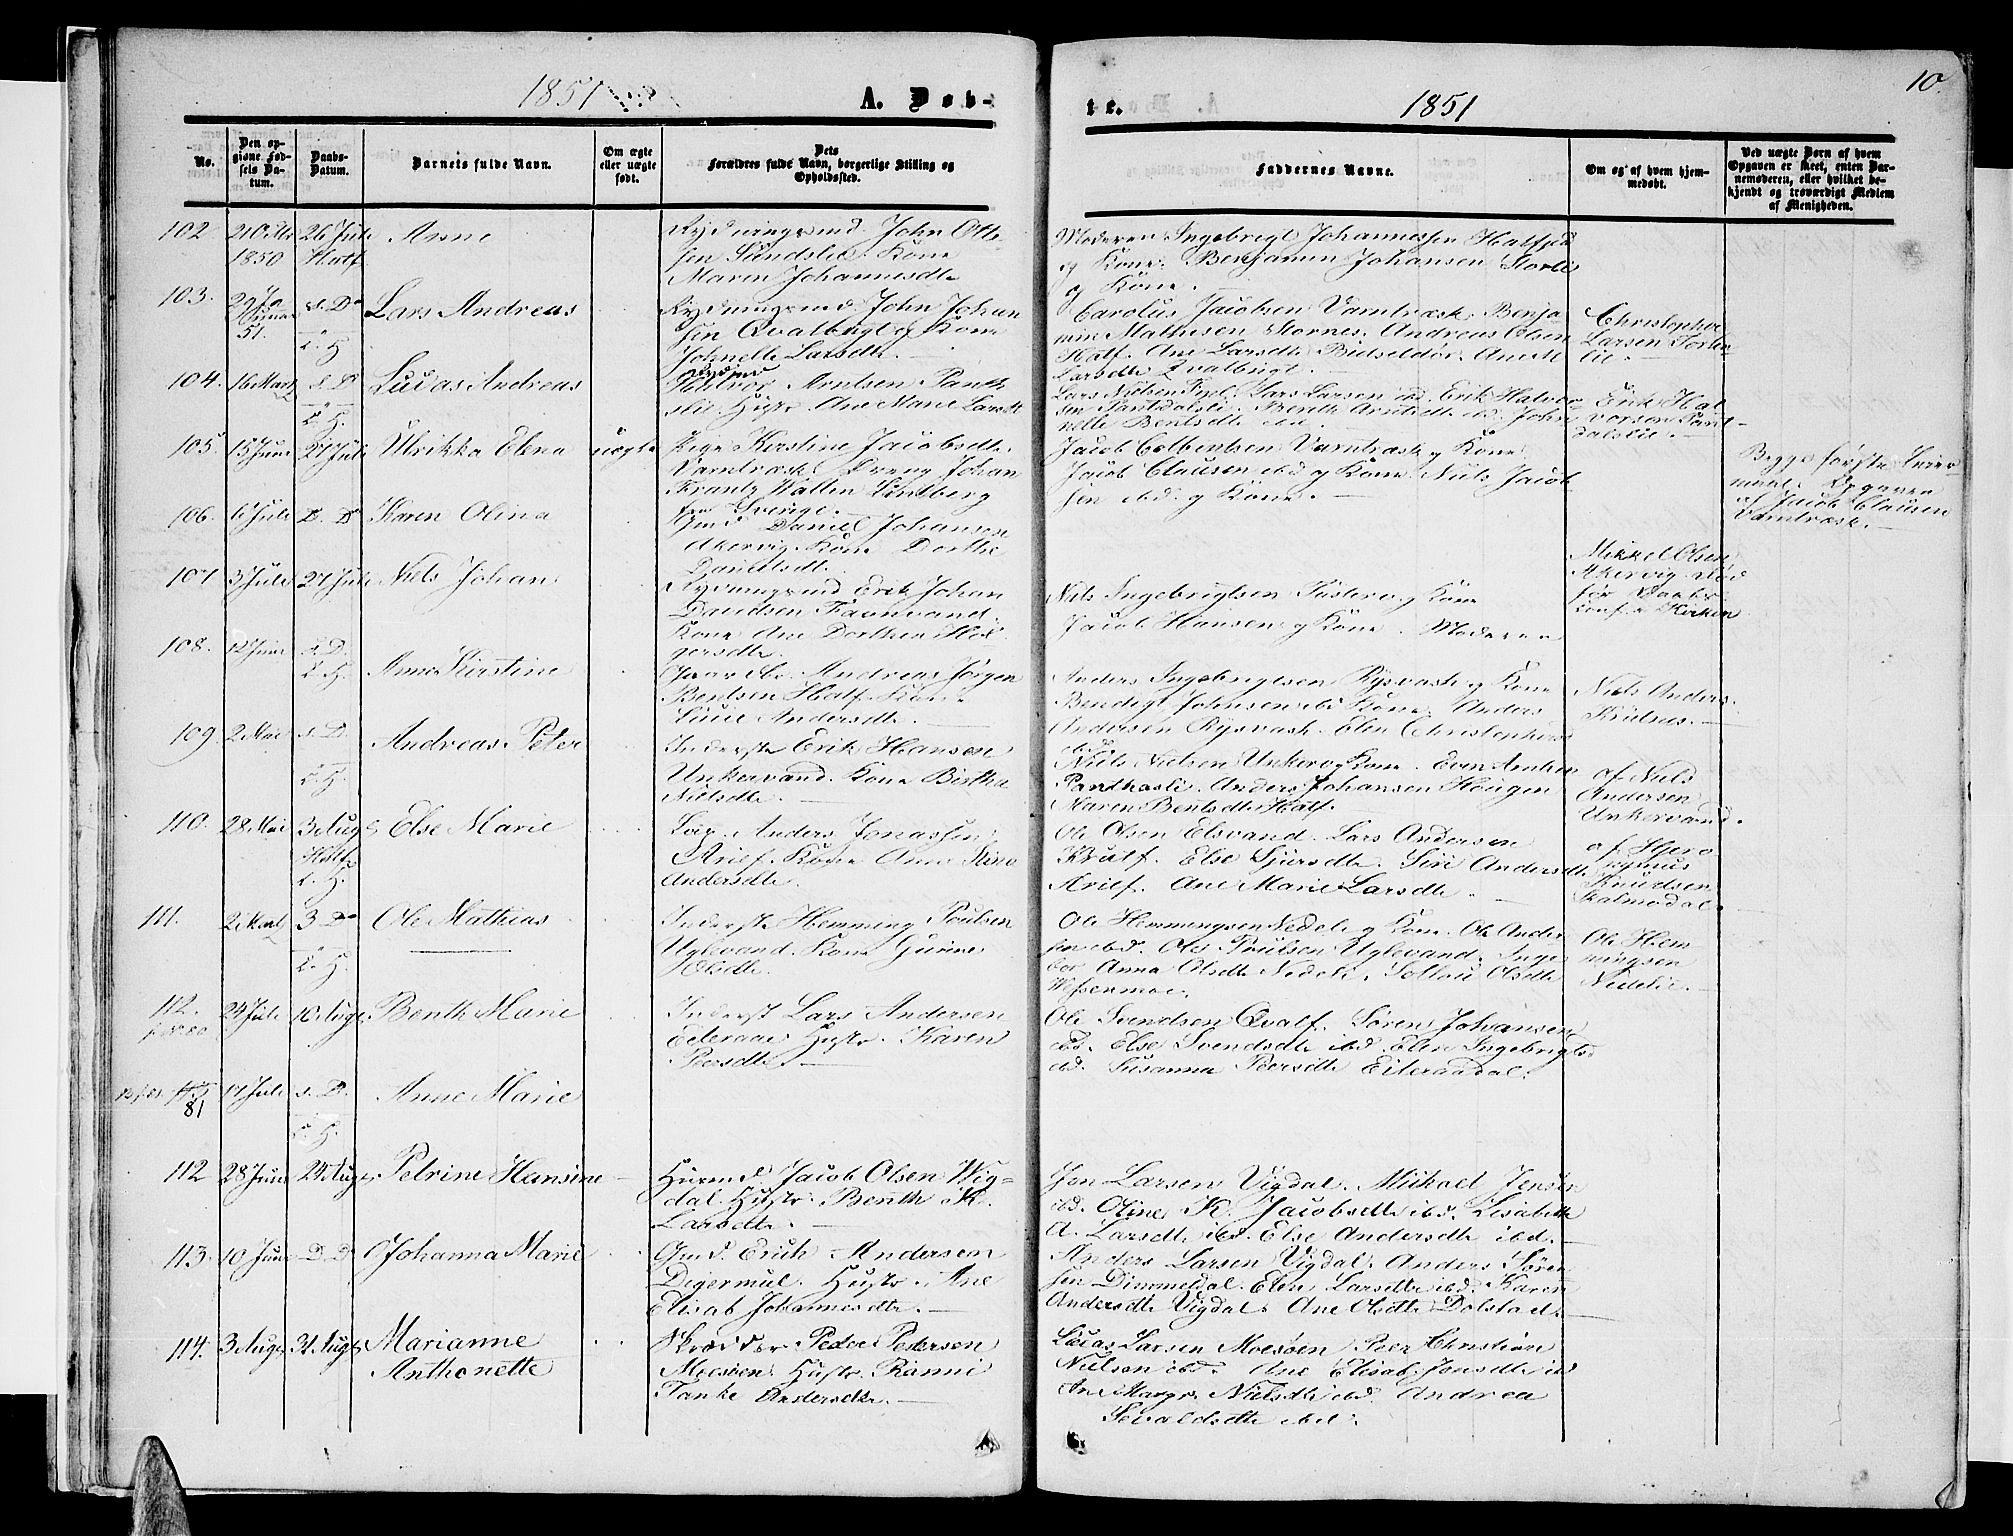 1851
A. Døb-
te.
1851
10.
No.
Den op-
givne Fød-
sels Da-
tum.
Daabs-
Datum.
Barnets fulde Navn.
Om ægte
eller uægte
født.
Dets
Forældres fulde Navn, borgerlige Stilling og
Opholdssted.
Faddernes Navne.
Om og af hvem hjem-
medøbt.
Ved uægte Børn af hvem
Opgaven er skeet, enten Bar-
nemoderen, eller hvilket be-
kjendt og troværdigt Medlem
af Menigheden.
102
1850
26 Juli
Hatf.
Anne
Rydningsmd. John Otte-
sen Sundslie. Kone
Maren Johannesdtr
Moderen Ingebrigt Johannessen Hatfjd
og Kone. Benjamin Johansen Storlie
og Kone.
103.
51.
s. D.
C. H.
Lars Andreas
Rydningsmd. John Johan
sen Qvalbugt og Kone
Johnelle Larsdtr.
Carolus Jacobsen Vamtræsk. Benja-
min Mathisen Stornes. Andreas Olsen
Hatf. Ane Larsdtr
Larsdtr Qvalbugt.
Christopher
Larsen
lie.
104.
16 Marts
s. D.
C. H.
Lucas Andreas
Halvor Arntsen Pantd
slie. Hustr. Ane Marie Larsdtr
Lars Nielsen Fjel. Lars Larsen ibd. Erik Halvor-
sen Pantdalslie. Benth Arntsdtr ibd. John
nelle Bentsdtr ibd.
Erik Hal
vorsen Pant-
dalslie.
105.
15 Juni
27 Juli
Ulrikka Elena
uægte
Pige Kirstine Jacobsdtr
Vamtræsk. Dreng Johan
Krantz Wallen Lindberg
fra Sverige.
Jacob Colbentsen Vamtræsk og Kone
Jacob Clausen ibd og Kone. Niels Jacob
sen ibd. og Kone.
Begges første Leier-
maal. Opgaven
af Jacob Clausen
Vamtræsk.
106.
6 Juli
D. D.
Karen Olina
Gmd. Daniel Johansen
Akervig Kone Dorthe
Danielsdtr.
Mikkel Olsen
Akervig. død
før Daabs
konf. i Kirken
107
3 Juli
27 Juli
Niels Johan
Rydningsmd Erik Johan
Davidsen Favnvand.
Kone Ane Dorthea Hol
gersdtr.
Niels Ingebrigtsen Fusterv og Kone
Jacob Hansen og Kone. Moderen
108.
12 Juni
s. D.
C. H.
Anne Kirstine
Andreas Jörgen
Bentsen Hatf. Kone
Andersdtr.
Anders Ingebrigtsen Rysvask og Kone
Bendigt Johnsen ibd Kone. Anders
Andersen Rysvask. Elen
ibd.
Niels Anders.
Krutnes.
109
2 Mai
s. D.
C. H.
Andreas Peter
Inderste Erik Hansen
Unkervand. Kone Birtha
Nielsdtr.
Niels Nielsen Unkerv og Kone. Even Arntsen
Panthaslie. Anders Johansen Haugen
Maren Bentsdtr Hatf.
af Niels
Andersen
Unkervand.
110.
28 Mai
3 Aug.
Hatf.
C. H.
Else Marie
Anders Jonassen
Arief. Kone Anne Stina
Andersdtr.
Ole Olsen Elsvand. Lars Andersen
Krutf. Else Sjursdtr. Siri Andersdtr
Arief. Ane Marie Larsdtr
af Hjero
nymus
Knudsen
Skalmodal.
111.
2 Marts
3 Do
C. H.
Ole Mathias
Inderste Hemming Poulsen
Uglevand. Kone Gurine
Olsdtr.
Ole Hemmingsen Nedelie og Kone. Ole Ander
sen ibd. Ole Poulsen Uglevand. Inge
bor Anna Olsdtr Nedeli.
Ole Hem
mingsen
Nedelie.
112.
10 Aug.
Benth Marie
Inderst Lars Andersen
Eiteraae Hustr. Karen
Peersdtr.
Ole Svendsen Qvalf. Søren Johansen
ibd. Else Svendsdtr ibd. Elen Ingebrigtsd
ibd. Susanna Peersdtr Eiteraadal.
81
17 Juli
s. D.
C. H.
Anne Marie
112
28 Juni
24 Aug.
Petrine Hansine
Huusmd. Jacob Olsen Wig-
dal. Hustr. Benth M.
Larsdtr.
Jon Larsen Vigdal. Mikael Jensen
ibd. Oline K. Jacobsdtr ibd. Lisabeth
A. Larsdtr ibd. Else Andersdtr ibd.
113.
10 Juni
D. D.
Johanna Marie
Gmd. Erich Andersen
Digermul. Hustr. Ane
Elisab. Johannesdtr.
Anders Larsen Vigdal. Anders Sören
sen Dimmeldal. Elen Larsdtr ibd. Karen
Andersdtr Vigdal. Ane Olsdtr Dolstad.
114.
3 Aug.
31 Aug.
Marianne
Anthonette
Skræder Peder Pedersen
Mosøen. Hustr.
Tanke Andersdtr.
Lucas Larsen Mosøen. Peer Christian
Nielsen ibd. Ane Elisab. Jonsdtr ibd
Ane Margr. Nielsdtr ibd. Andrea
Sevaldsdtr ibd.